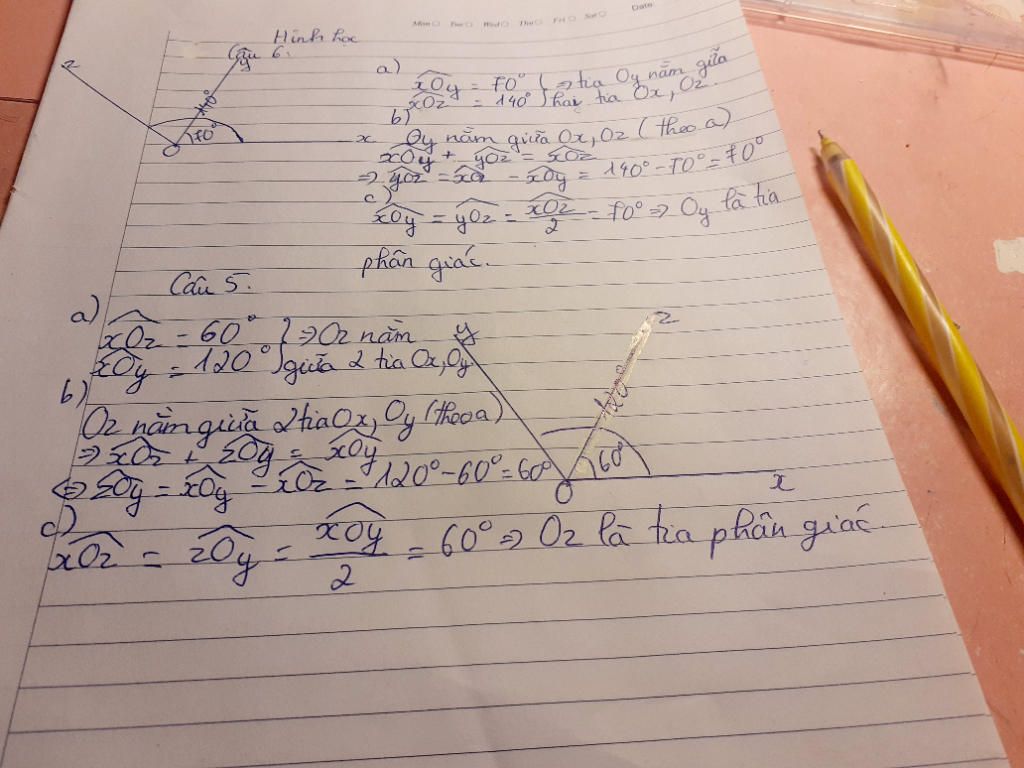 Mon Tue Wed Thu Fri Sat Date
Hình học
Câu 6.
z
y
140°
70°
O
x
a)
xOy = 70° } ⇒ tia Oy nằm giữa
xOz = 140° } hai tia Ox, Oz.
b)
Oy nằm giữa Ox, Oz (theo a)
xOy + yOz = xOz
⇒ yOz = xOz - xOy = 140° - 70° = 70°
c)
xOy = yOz = xOz/2 = 70° ⇒ Oy là tia
phân giác.
Câu 5.
a)
xOz = 60° } ⇒ Oz nằm
xOy = 120° } giữa 2 tia Ox, Oy
b)
Oz nằm giữa 2 tia Ox, Oy (theo a)
⇒ xOz + zOy = xOy
⇔ zOy = xOy - xOz = 120° - 60° = 60°
y
z
120°
60°
O
x
c)
xOz = zOy = xOy/2 = 60° ⇒ Oz là tia phân giác.